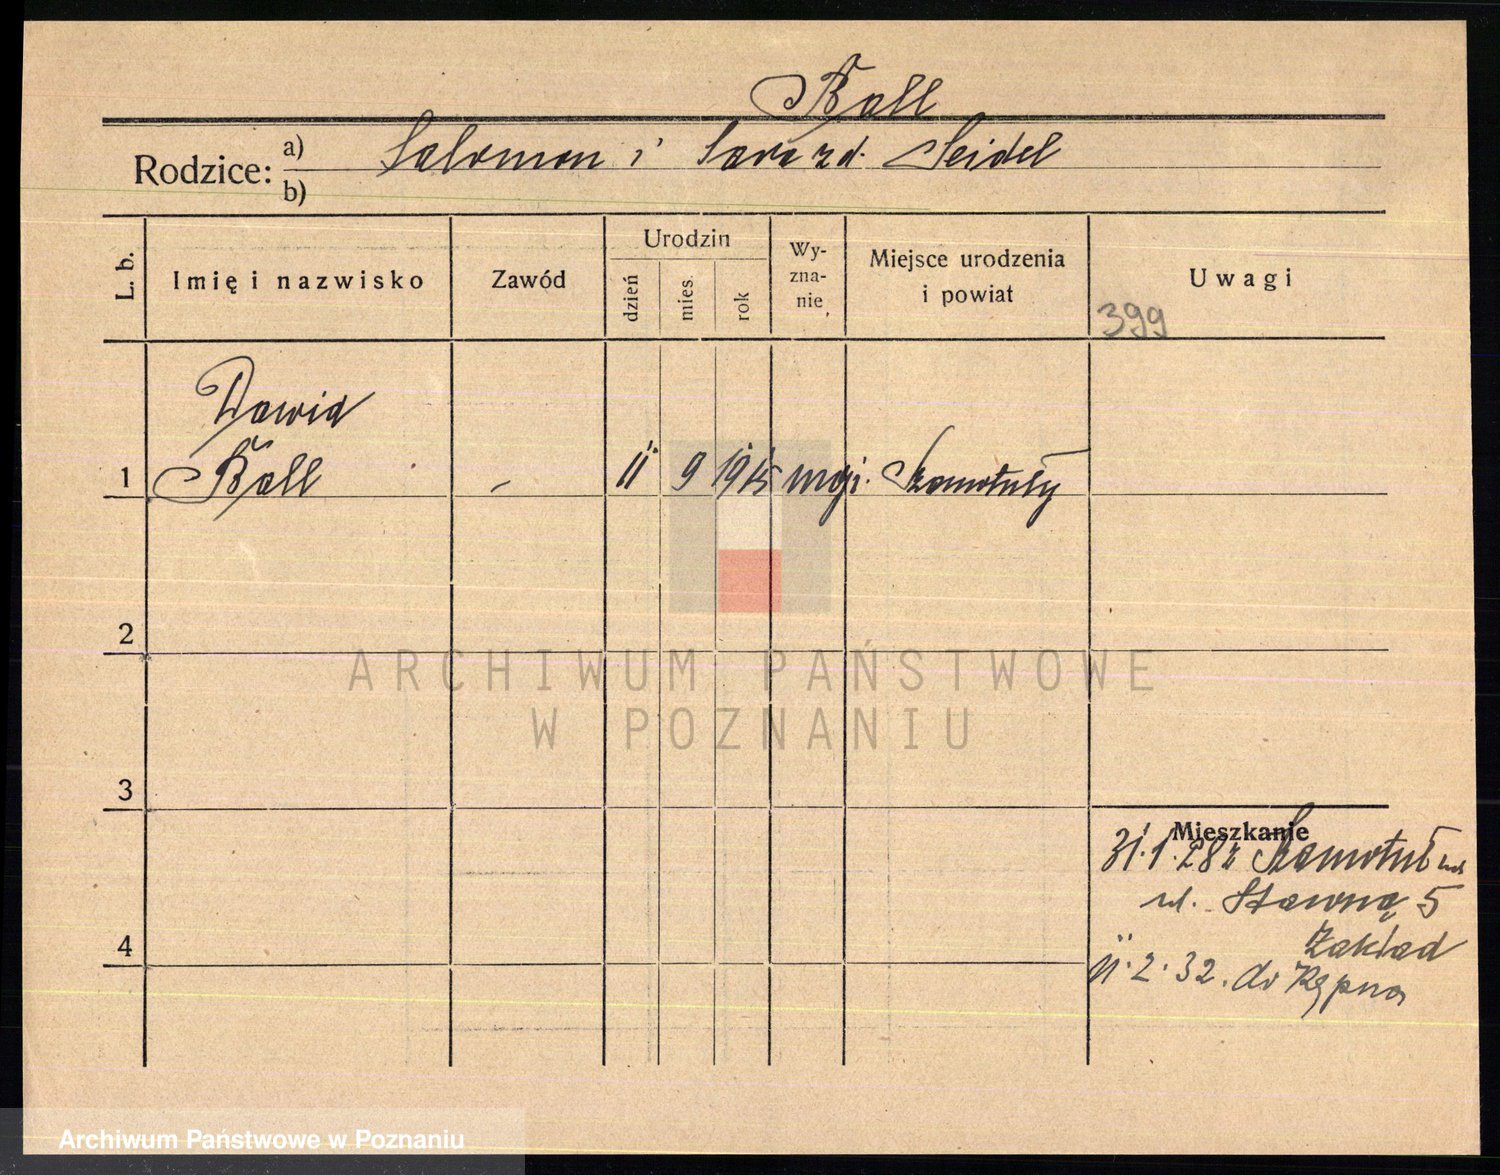 Ball
Rodzice: a) Salomon i Sara zd. Seidel
b)
L. b. Imię i nazwisko Zawód Urodzin dzień mies. rok Wy-zna-nie Miejsce urodzenia i powiat Uwagi
399
Dawid
1 Ball - 11 9 1915 mojż. Szamotuły
2
3
4
Mieszkanie
31.1.28 z Szamotuł
ul. Stawną 5
Zakład
11.2.32. do Kępna
ARCHIWUM PAŃSTWOWE
W POZNANIU
Archiwum Państwowe w Poznaniu